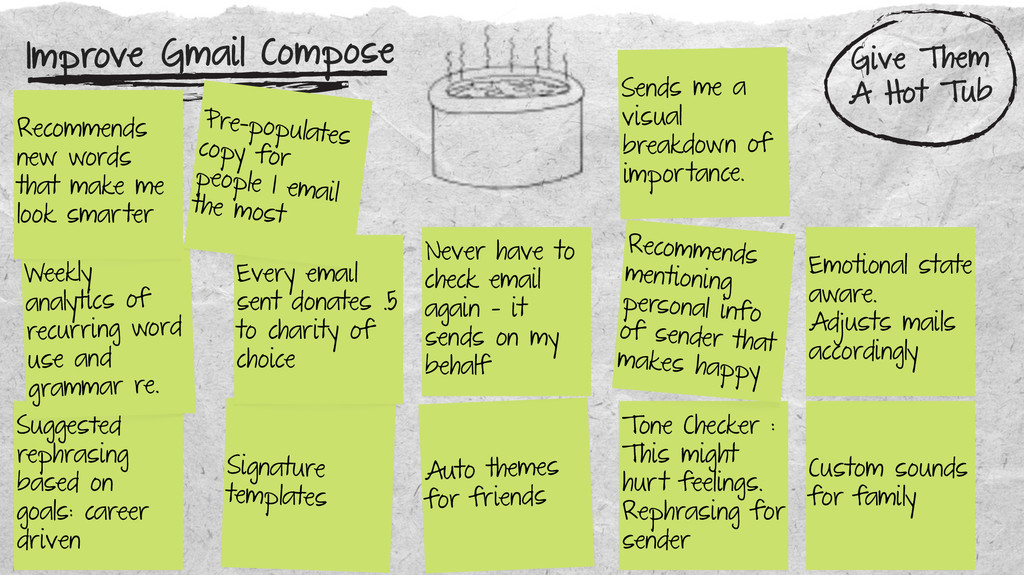 Improve Gmail Compose
Give Them
A Hot Tub
Recommends
new words
that make me
look smarter
Pre-populates
copy for
people I email
the most
Sends me a
visual
breakdown of
importance.
Weekly
analytics of
recurring word
use and
grammar re.
Every email
sent donates .5
to charity of
choice
Never have to
check email
again - it
sends on my
behalf
Recommends
mentioning
personal info
of sender that
makes happy
Emotional state
aware.
Adjusts mails
accordingly
Suggested
rephrasing
based on
goals: career
driven
Signature
templates
Auto themes
for friends
Tone Checker :
This might
hurt feelings.
Rephrasing for
sender
Custom sounds
for family